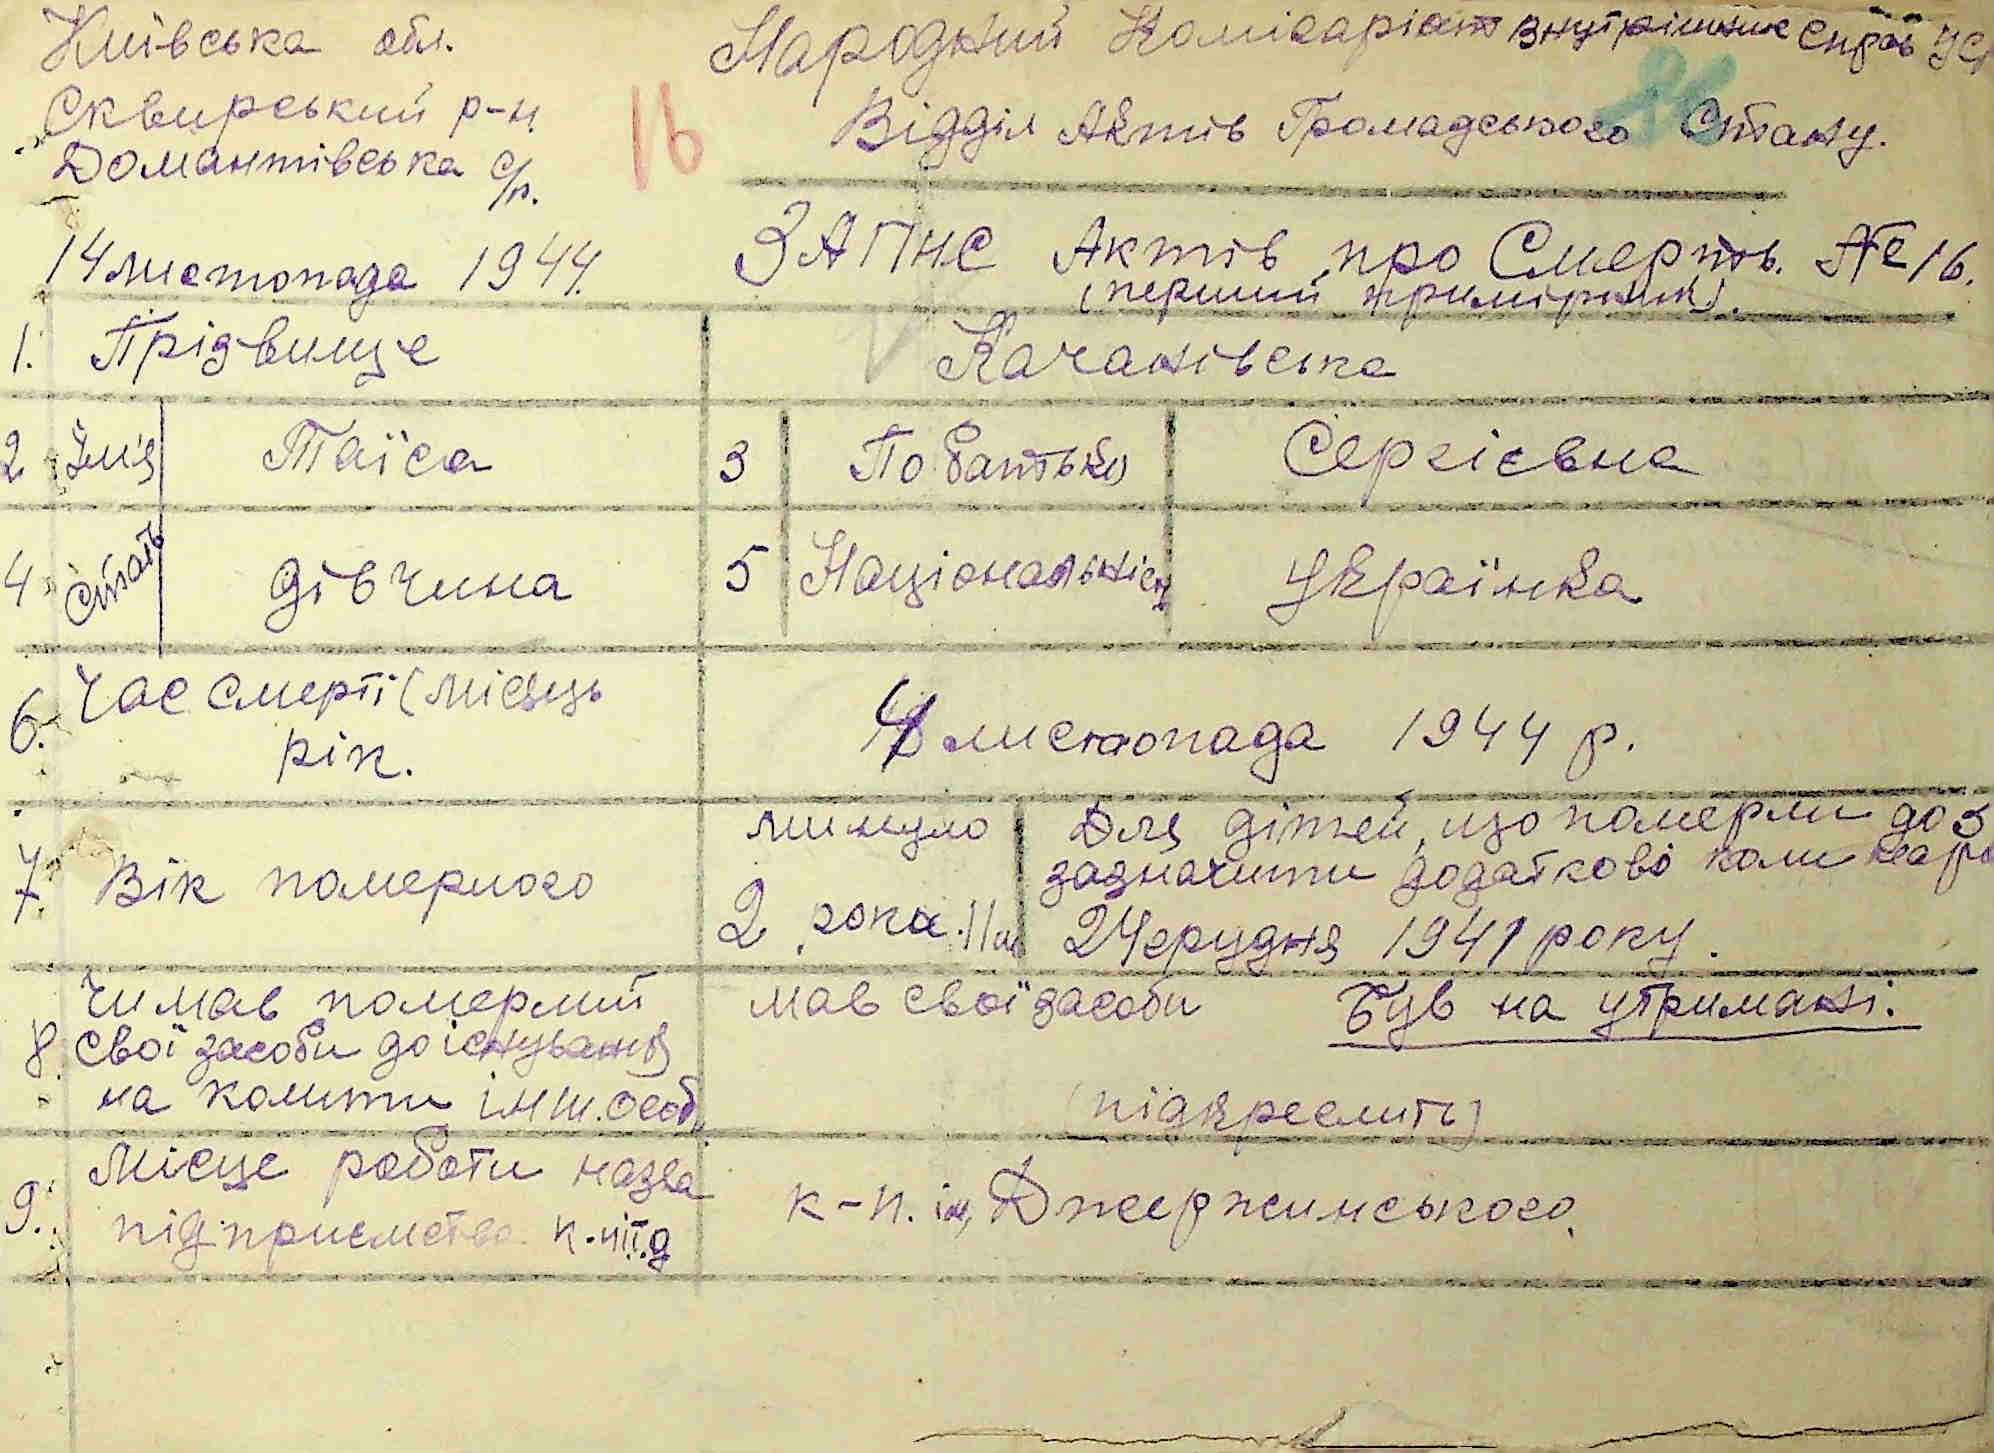 Київська обл.
Сквирський р-н.
Домантівська с/р.
14 листопада 1944.
16
Народний Комісаріат Внутрішних Справ УС
Відділ Актів Громадського Стану.
ЗАПИС Актів про Смерть. № 16.
(перший примірник).
1. Прізвище Качанівська
2 Ім'я Таїса 3 По батькові Сергієвна
4 Стать дівчина 5 Національніст Українка
6. Час смерті (місяць
рік. листопада 1944 р.
7. Вік померлого
минуло
2 рока 11 м
Для дітей, що померли до 3
зазначити додатково коли наро
24 грудня 1941 року.
8. Чи мав померлий
свої засоби до існування
на кошти інш. особ.
мав свої засоби Був на утримані.
(підкреслить)
9. Місце роботи назва
підприємства к. і т.д
к-п. ім, Джержинського.